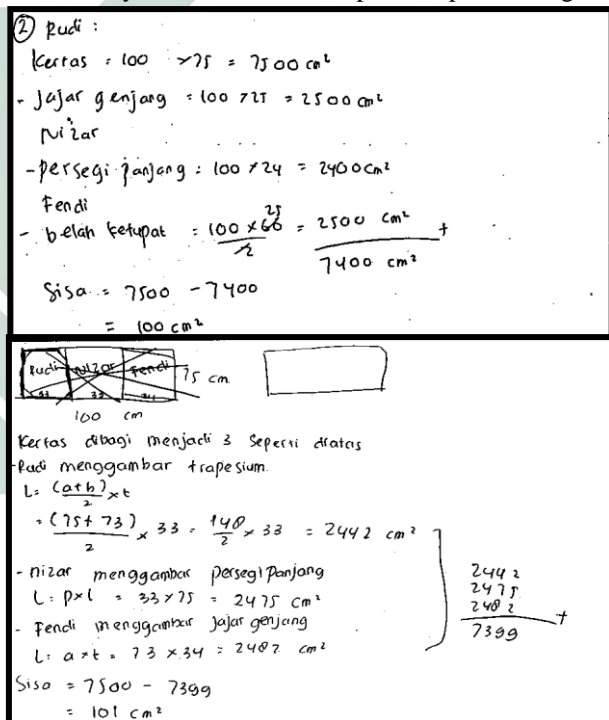 ② Rudi :
Kertas : 100 × 75 = 7500 cm²
- Jajar genjang = 100 × 25 = 2500 cm²
Nizar
- persegi panjang : 100 × 24 = 2400 cm²
Fendi
- belah ketupat = 100 × 50 25 / 2 = 2500 cm² +
7400 cm²
Sisa = 7500 - 7400
= 100 cm²
Rudi Nizar Fendi 75 cm
33 33 34
100 cm
Kertas dibagi menjadi 3 seperti diatas
- Rudi menggambar trapesium.
L = (a+b)/2 × t
= (75 + 73)/2 × 33 = 148/2 × 33 = 2442 cm²
- nizar menggambar persegi panjang
L : p×l = 33 × 75 = 2475 cm²
- Fendi menggambar jajar genjang
L : a×t = 73 × 34 = 2482 cm²
2442
2475
2482 +
7399
Sisa = 7500 - 7399
= 101 cm²